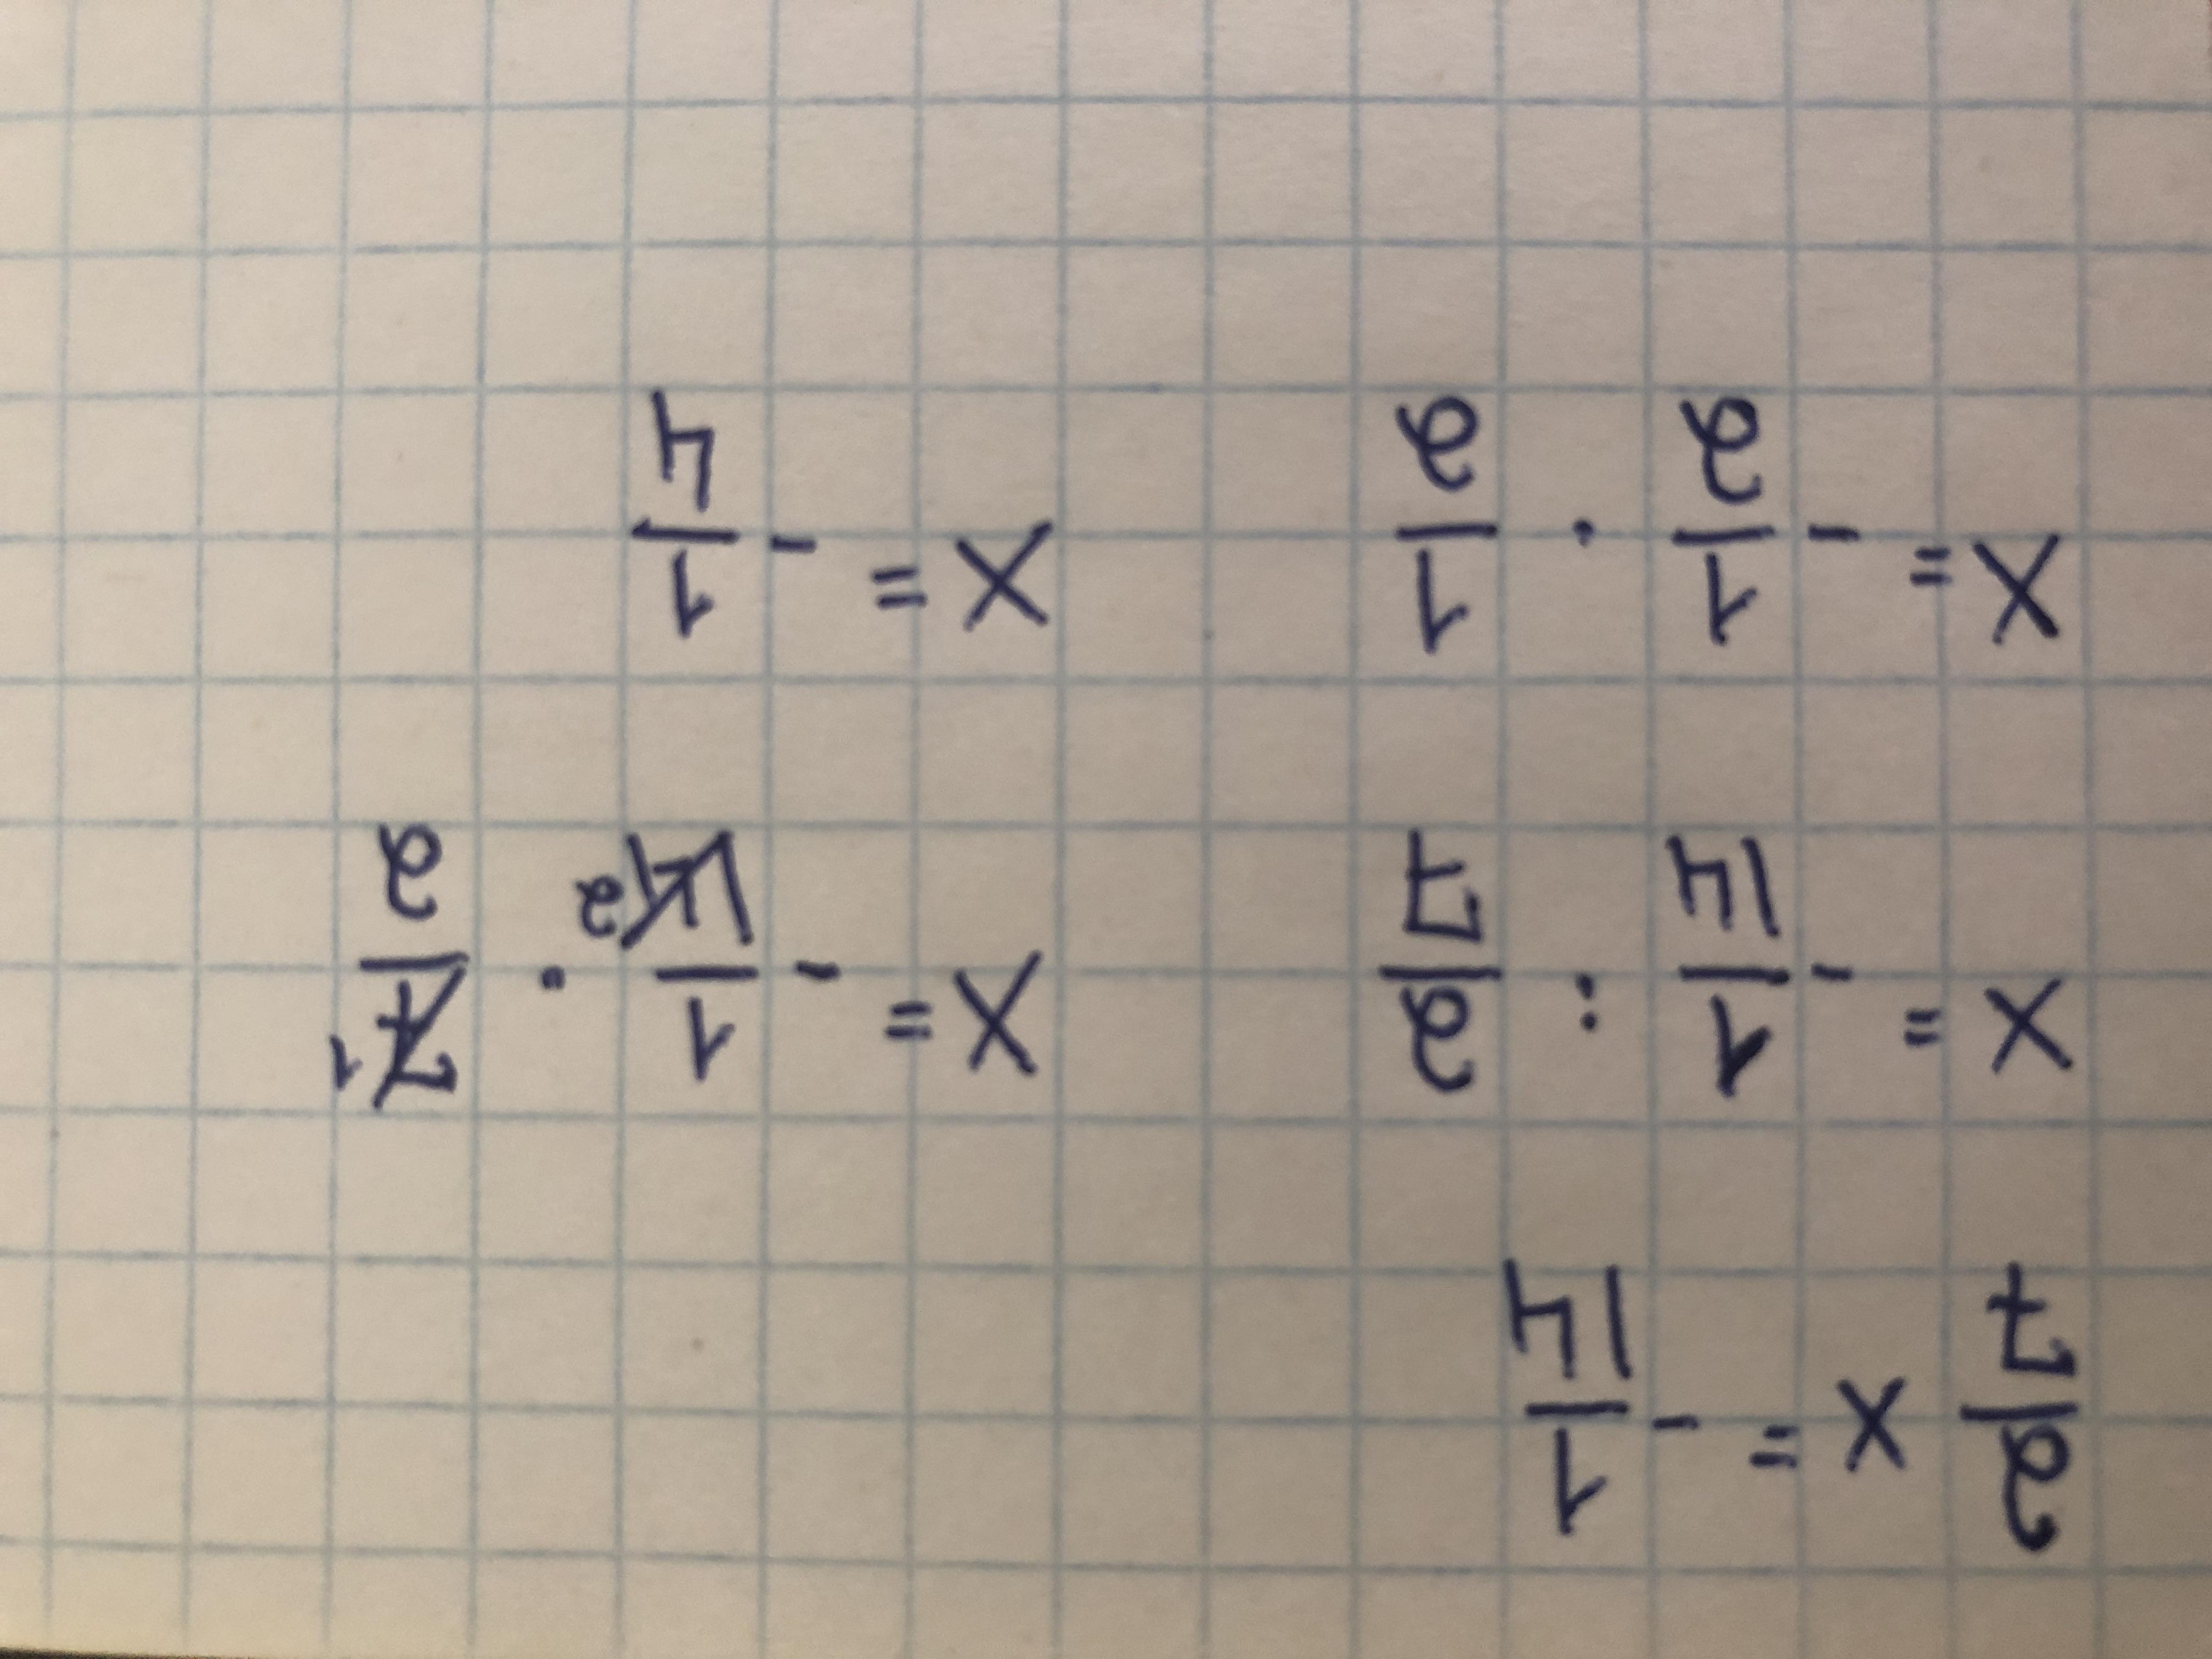 2/7 x = - 1/14
x = - 1/14 : 2/7 x = - 1/14 2 · 7 1/2
x = - 1/2 · 1/2 x = - 1/4